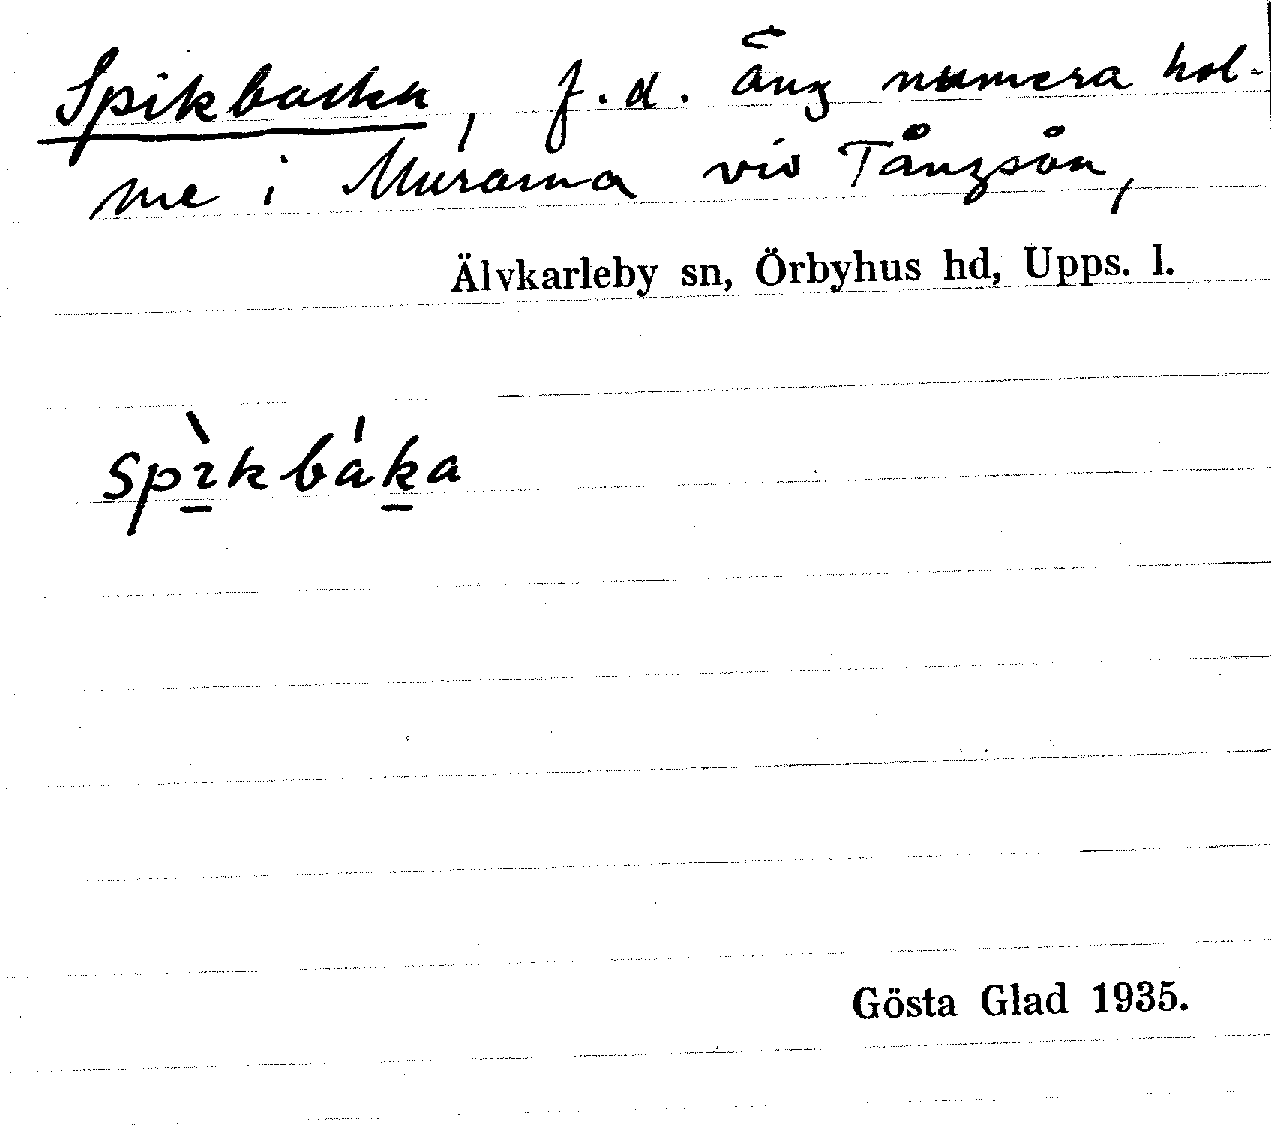 Spikbacken, f.d. äng numera hol-
me i Murarna vid Tångsån,
Älvkarleby sn, Örbyhus hd, Upps. l.
spì̱kbák̠a
Gösta Glad 1935.